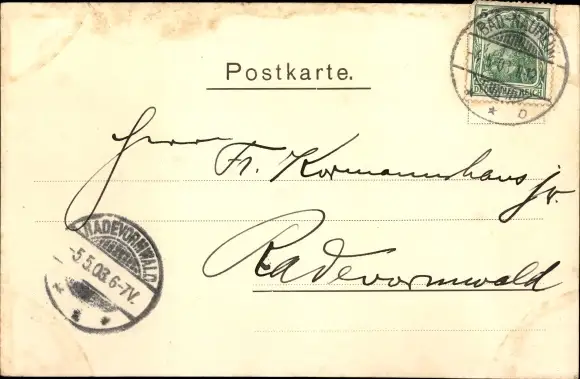 BAD-NAUHEIM
DEUTSCHES REICH
Postkarte.
Herrn
Fr. Kormannshaus jr.
Radevormwald
RADEVORMWALD
-5.5.03.6-7V.